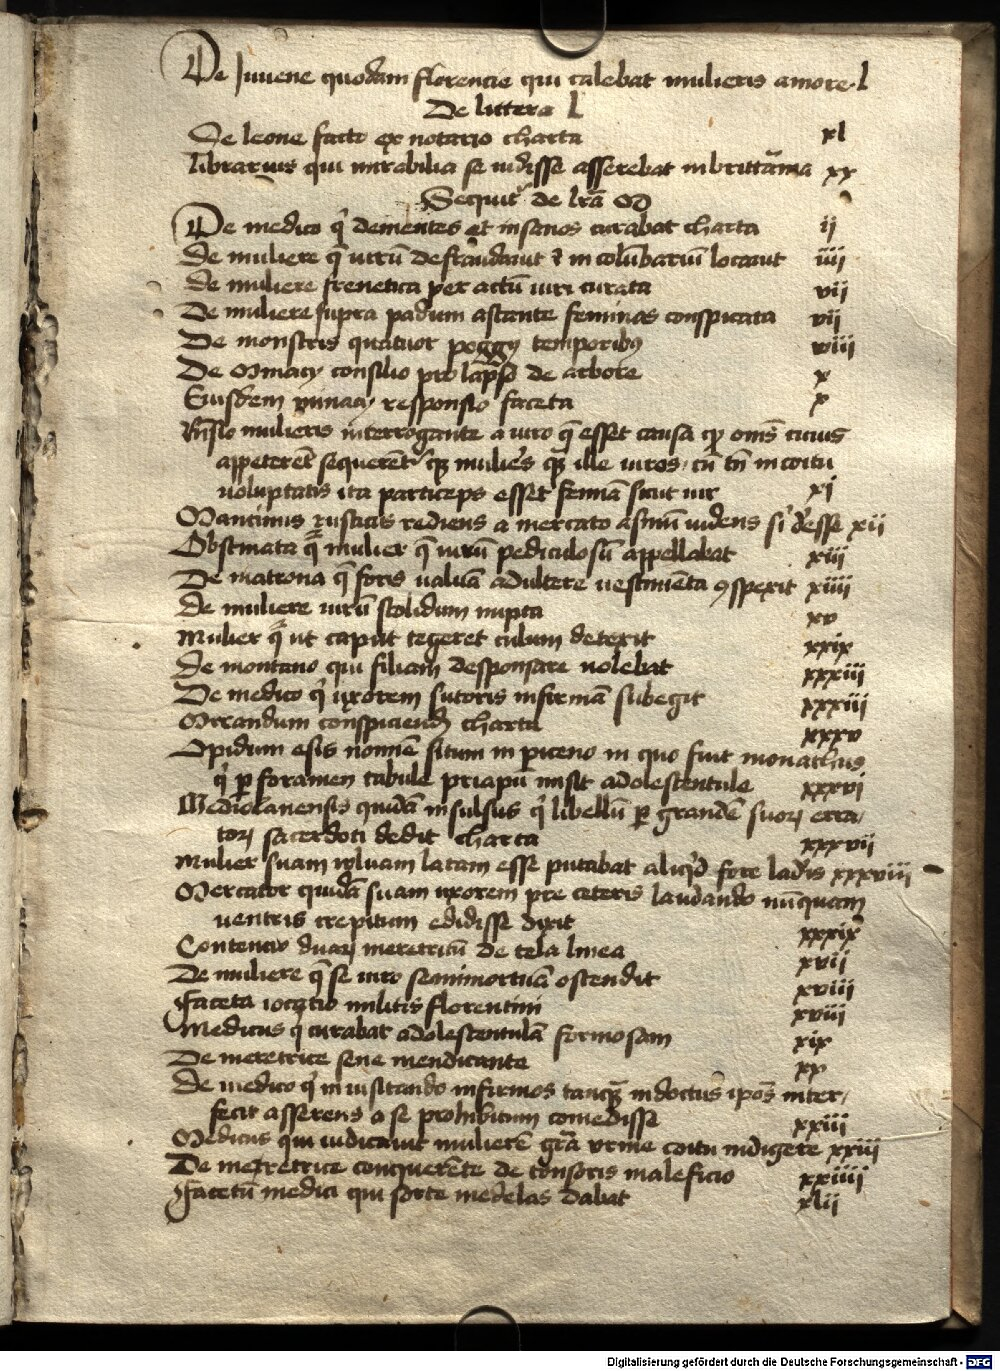 De Juuene quodam florencie qui calebat mulieris amore l
De littera l
De leone facto ex notario charta xl
librarius qui mirabilia se uidisse asserebat in brittania xx
Sequit᷑ de lr̄a M
De medico q̇ dementes et insanos curabat charta ij
De muliere q̄ uirū defraudauit ⁊ in colūbariū locauit iiij
De muliere frenetica per actū uiri curata vij
De muliere supra padum astante feminas conspicata vij
De monstris quatuor poggij temporibꝰ viiij
De Minacij consilio pro lapso de arbore x
Eiusdem minacij responsio faceta x
Rn̄sio mulieris interrogante a uiro q̄ esset causa cp̄ om̄s cicius
appeterēt sequerēt᷑ qȝ mulieēs qȝ ille uiros, cū tn̄ in coitu
uoluptatis ita particeps esset femīa sicut uir xj
Mancinus rusticus rediens a mercato asinū uidens si᷑ deesse xij
Obstinata q̄ mulier q̄ uirū pediculosū appellabat xiij
De matrona q̄ foris ualuā adultere uestimēta ꝯspexit xiiij
De muliere uirū stolidum nupta xv
Mulier q̄ ut caput tegeret culum detexit xxix
De montano qui filiam desponsare uolebat xxxiij
De medico q̇ uxorem sutoris infirmā subegit xxxiij
Mirandum conspiciendū charta xxxv
Opidum esis nomīe situm in piceno in quo fuit monachus
q̇ p̱ foramen tabule priapū misit adolescentule xxxvj
Mediolanensis quidā insulsus q̇ libellū p̱ grandē suoꝝ erra,
toꝝ sacerdoti dedit charta xxxvij
Mulier suam uuluam latam esse putabat aliq̇d fore ladris xxxviij
Mercator quidā suam uxorem pre ceteris laudando nūquam
uentris crepitum edidisse dixit xxxix
Contentio duaꝝ meretricū de tela linea xvij
De muliere q̄ se uiro semimortuā ostendit xviij
Faceta iocatio militis florentini xviij
Medicus q̇ curabat adolescentulā formosam xix
De meretrice sene mendicante xx
De medico q̇ in uisitando infirmos tanqȝ indoctus ipōs inter,
fecit asserens a se prohibitum comedisse xxiij
Medicus qui iudicauit mulierē gr̄a urine coitu indigere xxiij
De meretrice conquerēte de tonsoris maleficio xxiiij
Facetū medici qui sorte medelas dabat xlij
Digitalisierung gefördert durch die Deutsche Forschungsgemeinschaft - DFG